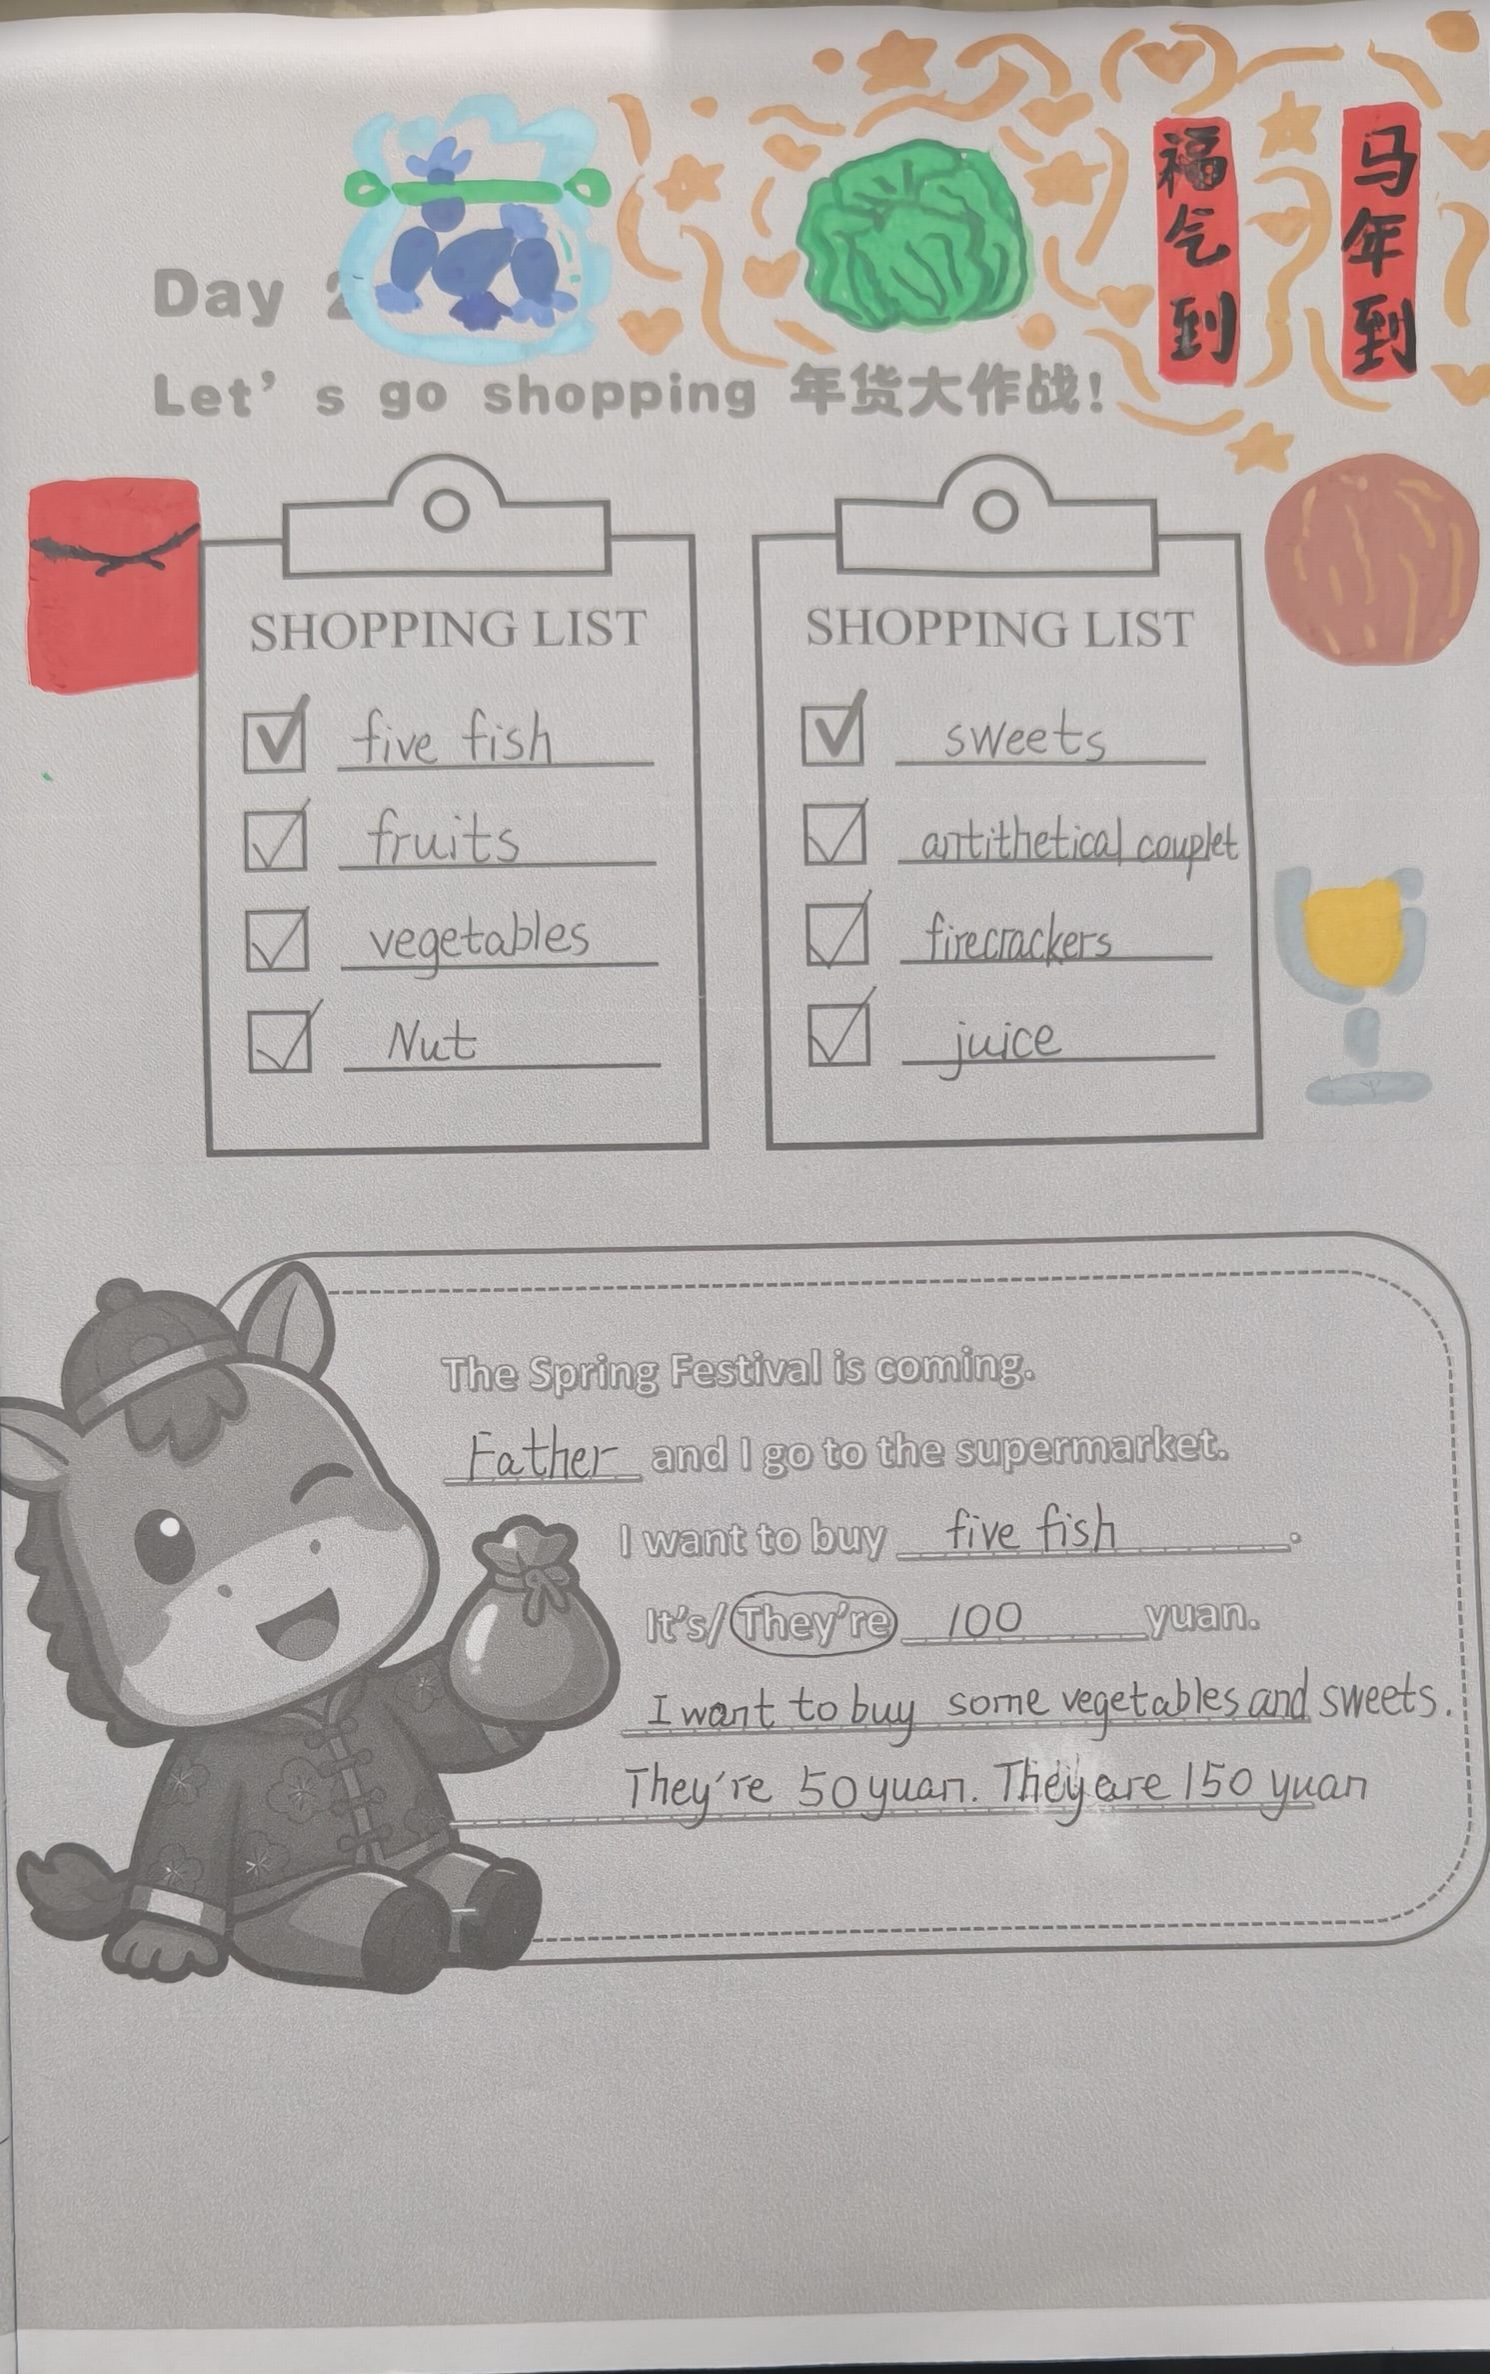 福气到
马年到
Day 2
Let's go shopping 年货大作战!
SHOPPING LIST
five fish
fruits
vegetables
Nut
SHOPPING LIST
sweets
antithetical couplet
firecrackers
juice
The Spring Festival is coming.
Father and I go to the supermarket.
I want to buy five fish.
It's/They're 100 yuan.
I want to buy some vegetables and sweets.
They're 50 yuan. They are 150 yuan